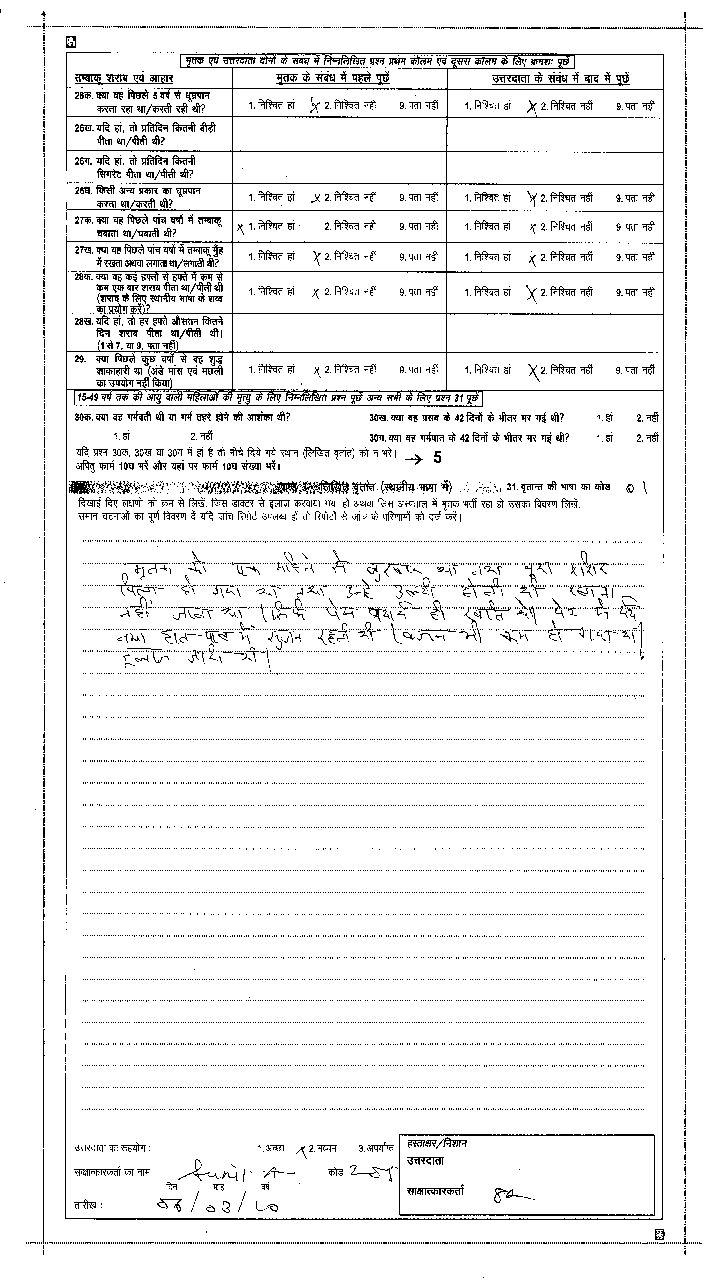 मृतक एवं उत्तरदाता दोनों के संबंध में निम्नलिखित प्रश्न प्रथम कॉलम एवं दूसरा कॉलम के लिए क्रमशः पूछें
तम्बाकू शराब एवं आहार मृतक के संबंध में पहले पूछें उत्तरदाता के संबंध में बाद में पूछें
26क. क्या वह पिछले 5 वर्ष से धूम्रपान
करता रहा था/करती रही थी? 1. निश्चित हां X 2. निश्चित नहीं 9. पता नहीं 1. निश्चित हां X 2. निश्चित नहीं 9. पता नहीं
26ख. यदि हां, तो प्रतिदिन कितनी बीड़ी
पीता था/पीती थी?
26ग. यदि हां, तो प्रतिदिन कितनी
सिगरेट पीता था/पीती थी?
26घ. किसी अन्य प्रकार का धूम्रपान
करता था/करती थी? 1. निश्चित हां X 2. निश्चित नहीं 9. पता नहीं 1. निश्चित हां X 2. निश्चित नहीं 9. पता नहीं
27क. क्या वह पिछले पांच वर्षों में तम्बाकू
चबाता था/चबाती थी? X 1. निश्चित हां 2. निश्चित नहीं 9. पता नहीं 1. निश्चित हां X 2. निश्चित नहीं 9. पता नहीं
27ख. क्या वह पिछले पांच वर्षों में तम्बाकू मुँह
में रखता अथवा लगाता था/लगाती थी? 1. निश्चित हां X 2. निश्चित नहीं 9. पता नहीं 1. निश्चित हां X 2. निश्चित नहीं 9. पता नहीं
28क. क्या वह कई हफ्तों से हफ्ते में कम से
कम एक बार शराब पीता था/पीती थी 1. निश्चित हां X 2. निश्चित नहीं 9. पता नहीं 1. निश्चित हां X 2. निश्चित नहीं 9. पता नहीं
(शराब के लिए स्थानीय भाषा के शब्द
का प्रयोग करें)?
28ख. यदि हां, तो हर हफ्ते औसतन कितने
दिन शराब पीता था/पीती थी।
(1 से 7, या 9, पता नहीं)
29. क्या पिछले कुछ वर्षों से वह शुद्ध
शाकाहारी था (अंडे मांस एवं मछली 1. निश्चित हां X 2. निश्चित नहीं 9. पता नहीं 1. निश्चित हां X 2. निश्चित नहीं 9. पता नहीं
का उपयोग नहीं किया)
15-49 वर्ष तक की आयु वाली महिलाओं की मृत्यु के लिए निम्नलिखित प्रश्न पूछें अन्य सभी के लिए प्रश्न 31 पूछें
30क. क्या वह गर्भवती थी या गर्भ ठहरे होने की आशंका थी? 30ख. क्या वह प्रसव के 42 दिनों के भीतर मर गई थी? 1. हां 2. नहीं
1. हां 2. नहीं 30ग. क्या वह गर्भपात के 42 दिनों के भीतर मर गई थी? 1. हां 2. नहीं
यदि प्रश्न 30क, 30ख या 30ग में हां है तो नीचे दिये गये स्थान (लिखित वृतांत) को न भरें।
अपितु फार्म 10घ भरें और यहां पर फार्म 10घ संख्या भरें। → 5
लिखित वृतांत (स्थानीय भाषा में) 31. वृतान्त की भाषा का कोड 01
दिखाई दिए लक्षणों को क्रम से लिखें, किस डाक्टर से इलाज करवाया गया हो अथवा जिस अस्पताल में मृतक भर्ती रहा हो उसका विवरण लिखें,
समान घटनाओं का पूर्ण विवरण दें यदि जांच रिपोर्ट उपलब्ध हो तो रिपोर्टों से जांच के परिणामों को दर्ज करें।
मृतक को एक महिने से बुखार था तथा पूरा शरीर
पिला हो गया था तथा उन्हे उल्टी होती थी खाना
नहीं जाता था। सिर्फ पेय पदार्थ ही थे। पेट में दर्द
तथा हात-पाव में सुजन रहती थी। वजन भी कम हो गया था।
थी।
उत्तरदाता का सहयोग : 1. अच्छा X 2. मध्यम 3. अपर्याप्त
हस्ताक्षर/निशान
उत्तरदाता
साक्षात्कारकर्ता का नाम Sunil कोड
दिन माह वर्ष
साक्षात्कारकर्ता
तारीख : 06/03/10